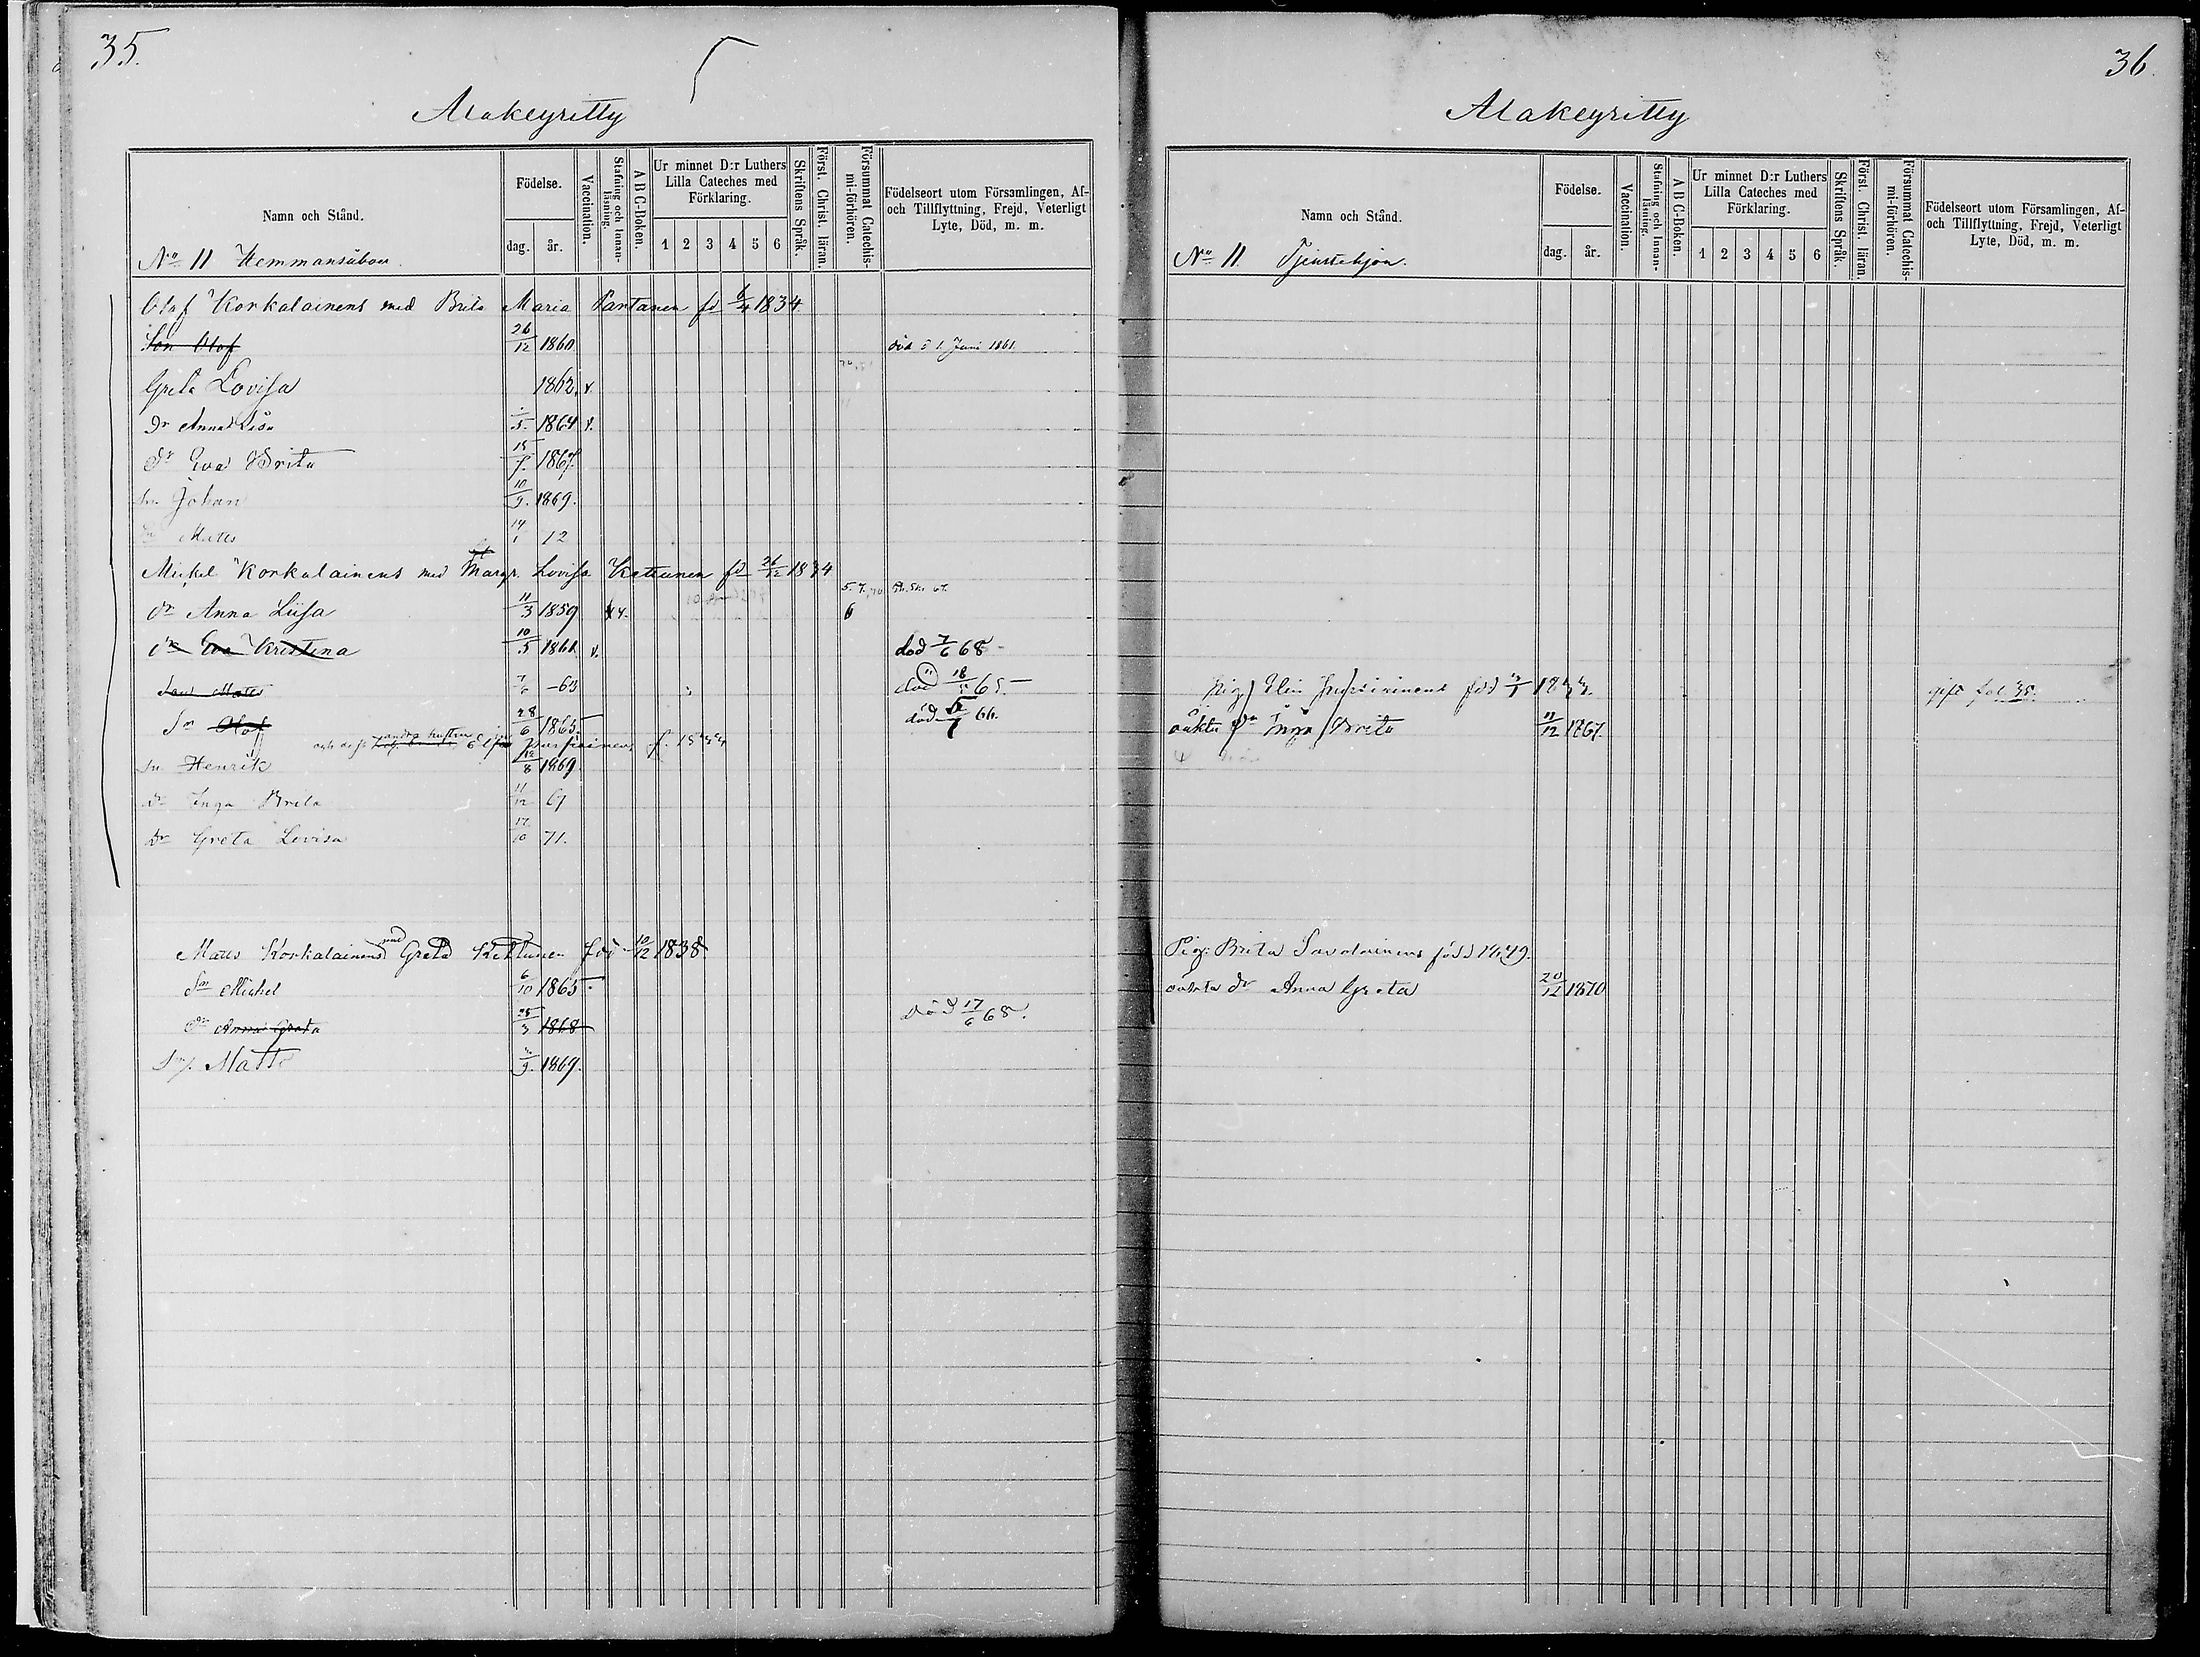 35.
Alakeyritty
Namn och Stånd.
Födelse.
dag.
år.
Vaccination.
Stafning och Innan-
läsning.
A B C-Boken.
Ur minnet D:r Luthers
Lilla Cateches med
Förklaring.
1 2 3 4 5 6
Skriftens Språk.
Först. Christ. läran.
Försummat Catechis-
mi-förhören.
Födelseort utom Församlingen, Af-
och Tillflyttning, Frejd, Veterligt
Lyte, Död, m. m.
No 11 Hemmansåboer.
Olof Korkalainens med Brita Maria Partanen fd 6/4 1834.
Son Olof 26/12 1860. död d 1 Juni 1861.
Greta Lovisa 1862. v.
Dr Anna Lisa 1864 v.
Dr Eva Brita 1867.
Sn Johan 10/9. 1869.
Matts 14/1 72
Mickel Korkalainens med Margr. Lovisa Kettunen fd 26/12 1834
Dr Anna Liisa 11/3 1859 6
Dr Eva Kristina 10/5 1861. v. död 7/6 68
Son Matts 7/6 -63 död 18/5 65.
Sn Olof 28/6 1865 död 66.
andra hustru f. 1844
Sn Henrik 12/8 1869.
Dr Inga Brita 11/12 67
Dr Greta Lovisa 17/10 71.
Matts Korkalainens med Greta Kettunen föd 10/12 1838
Sn Mickel 6/10 1865
Dr Anna Greta 25/3 1868 död 17/6 68.
Sn Matts 1869.
36.
Alakeyritty
Namn och Stånd.
Födelse.
dag.
år.
Vaccination.
Stafning och Innan-
läsning.
A B C-Boken.
Ur minnet D:r Luthers
Lilla Cateches med
Förklaring.
1 2 3 4 5 6
Skriftens Språk.
Först. Christ. läran.
Försummat Catechis-
mi-förhören.
Födelseort utom Församlingen, Af-
och Tillflyttning, Frejd, Veterligt
Lyte, Död, m. m.
No 11. Tjenstehjon.
Pig. Elin föd 1844. gift fol. 35.
oäkta Dr Inga Brita 11/12 1867.
Pig: Brita Savolainens född 1849.
oäkta Dr Anna Greta 20/12 1870